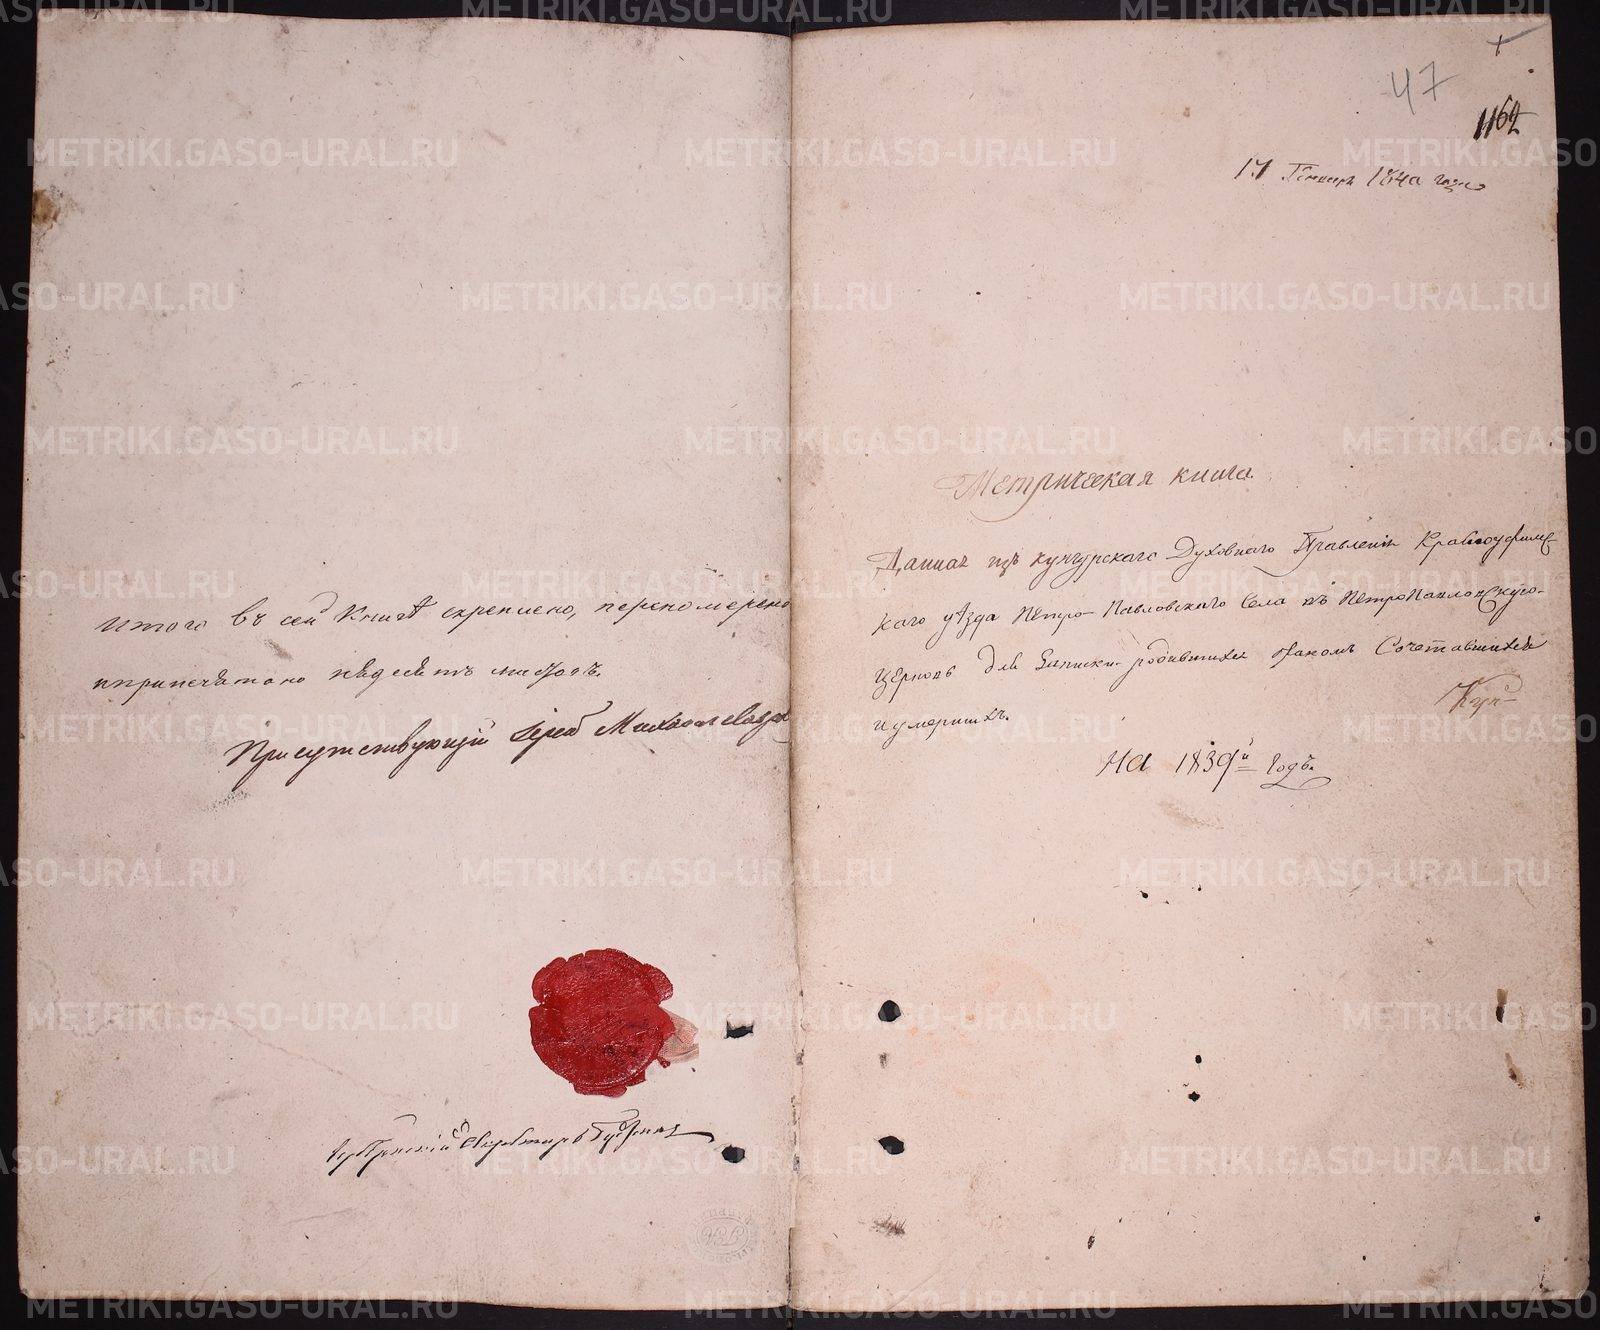 Итого въ сей Книгѣ скреплено, переномерено
иприпечатано пѣдесѣтъ листовъ.
Присутствующій Іерей Михаилъ
Губернскій Секретарь
47
1162
17 Генваря 1840 года
Метрическая книга
Данная изъ кунгурскаго Духовнаго Правленія Красноуфимс-
каго уѣзда Пѣтро-Павловскаго Села къ ПѣтроПавловскую-
церковь для Записки родившихся бракомъ Сочетавшихся
иумершихъ.
Кун-
На 1839й годъ.
METRIKI.GASO-URAL.RU